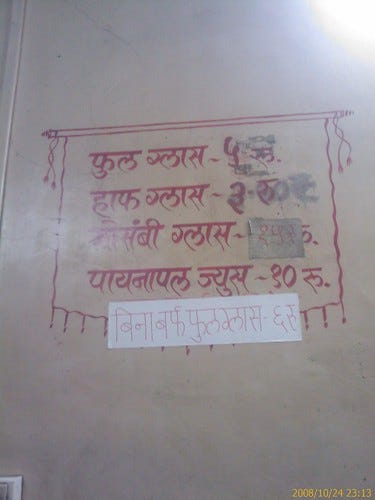 फुल ग्लास - ५ रु.
हाफ ग्लास - ३
मोसंबी ग्लास - १५ रु.
पायनापल ज्युस - १० रु.
बिना बर्फ फुल ग्लास - ६ रु
2008/10/24 23:13